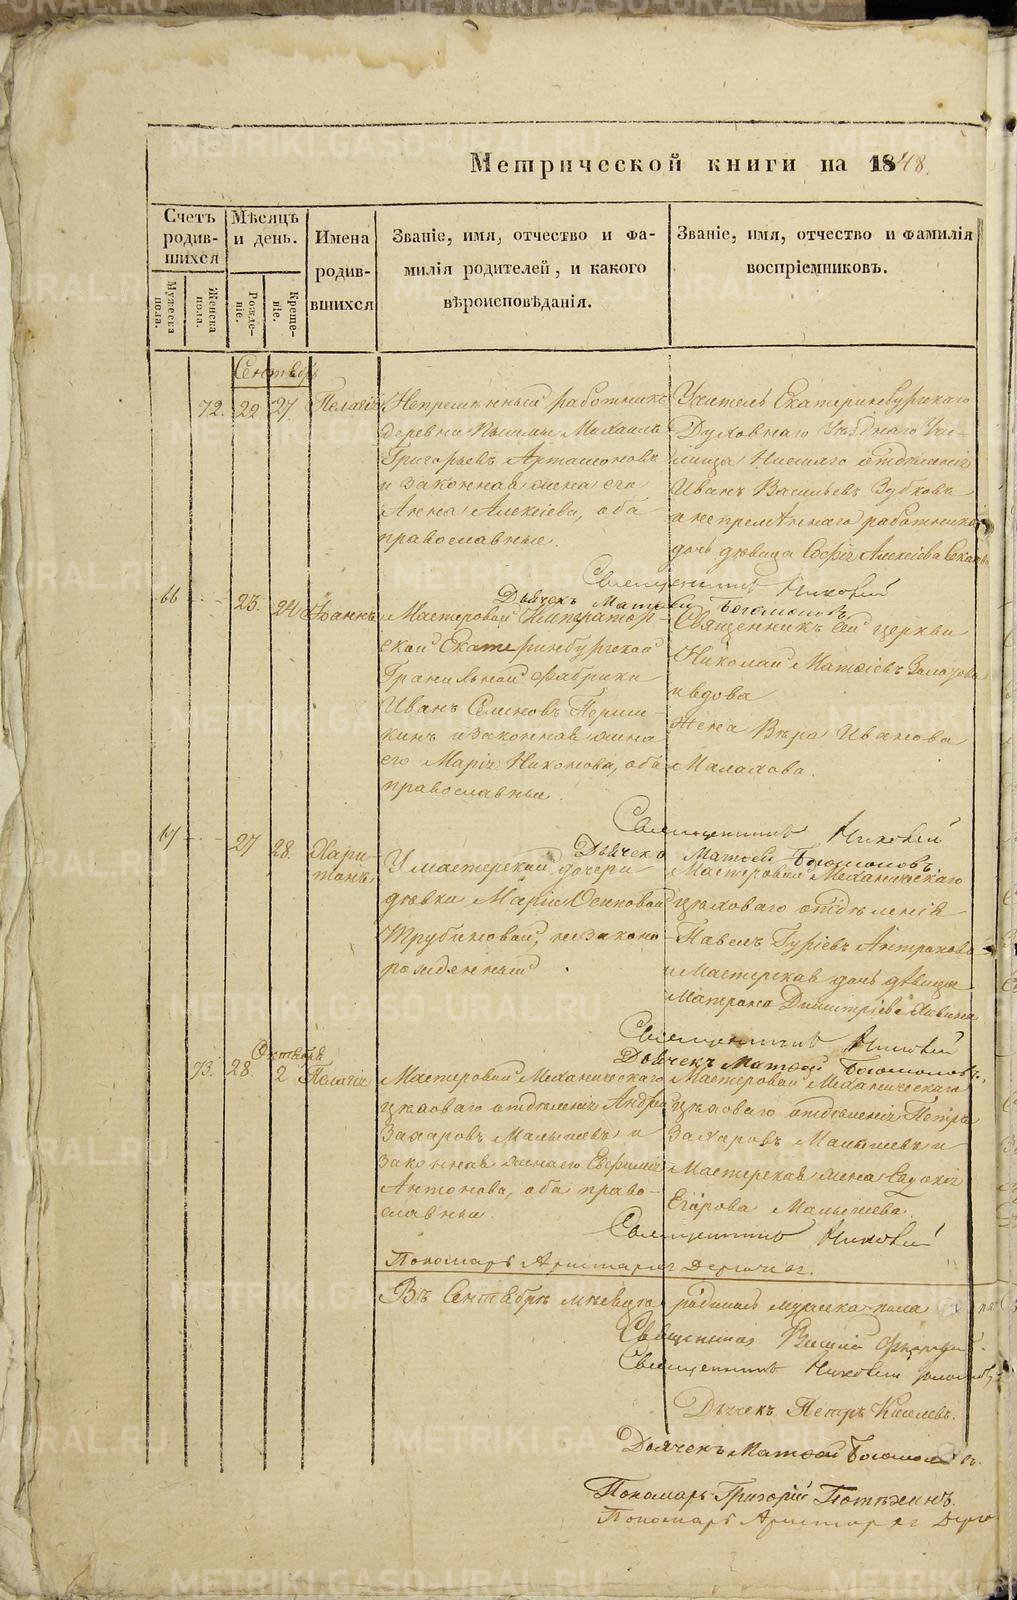 Метрической книги на 1848.
Счетъ родив-
шихся
Мѣсяцъ
и день.
Имена
родив-
шихся
Званіе, имя, отчество и фа-
милія родителей, и какого
вѣроисповѣданія.
Званіе, имя, отчество и фамилія
воспріемниковъ.
Мужеска
пола.
Женска
пола.
Рожде-
ніе.
Креще-
ніе.
Сентябрь
72. 22. 27. Пелагія
Непремѣнный работникъ
деревни Пышмы Михаилъ
Григорьевъ Артамоновъ
и законная жена его
Анна Алексіева, оба
православные.
Учитель Екатеринбургскаго
Духовнаго Уѣзднаго Учи-
лища Нисшаго отдѣленія
Иванъ Васильевъ Зубковъ
и непремѣннаго работника
дочь дѣвица Софія Алексіева
Священникъ Николай
Дьячекъ Матѳей Богомоловъ
66 23. 24 Іоаннъ
Мастеровой Император-
ской Екатеринбургской
Гранильной Фабрики
Иванъ Семеновъ Перши-
кинъ и законная жена
его Марія Никонова, оба
православные.
Священникъ сей церкви
Николай Матѳіевъ
и вдова
жена Вѣра Иванова
Малахова.
Священникъ Николай
Дьячекъ Матѳей Богомоловъ.
67 27 28. Хари-
тонъ
У мастерской дочери
дѣвки Маріи Осиповой
Трубиновой, незаконно-
рожденный
Мастеровой Механическаго
цеховаго отдѣленія
Павелъ Гуріевъ
и Мастерская дочь дѣвица
Матрона Димитріева
Священникъ Николай
Дьячекъ Матѳей Богомоловъ.
Октября
73. 28. 2 Пелагія
Мастеровой Механическаго
цеховаго отдѣленія Андрей
Захаровъ Малышевъ и
законная жена его Евфимія
Антонова, оба право-
славные.
Мастеровой Механическаго
цеховаго отдѣленія Петръ
Захаровъ Малышевъ и
Мастерская жена Евдокія
Егорова Малышева.
Священникъ Николай
Пономарь Аристархъ
Въ Сентябрѣ мѣсяцѣ родилось мужеска пола
Священникъ
Священникъ Николай
Дьячекъ Петръ Киселевъ.
Дьячекъ Матѳей Богомоловъ.
Пономарь Григорій Потѣхинъ.
Пономарь Аристархъ
METRIKI.GASO-URAL.RU